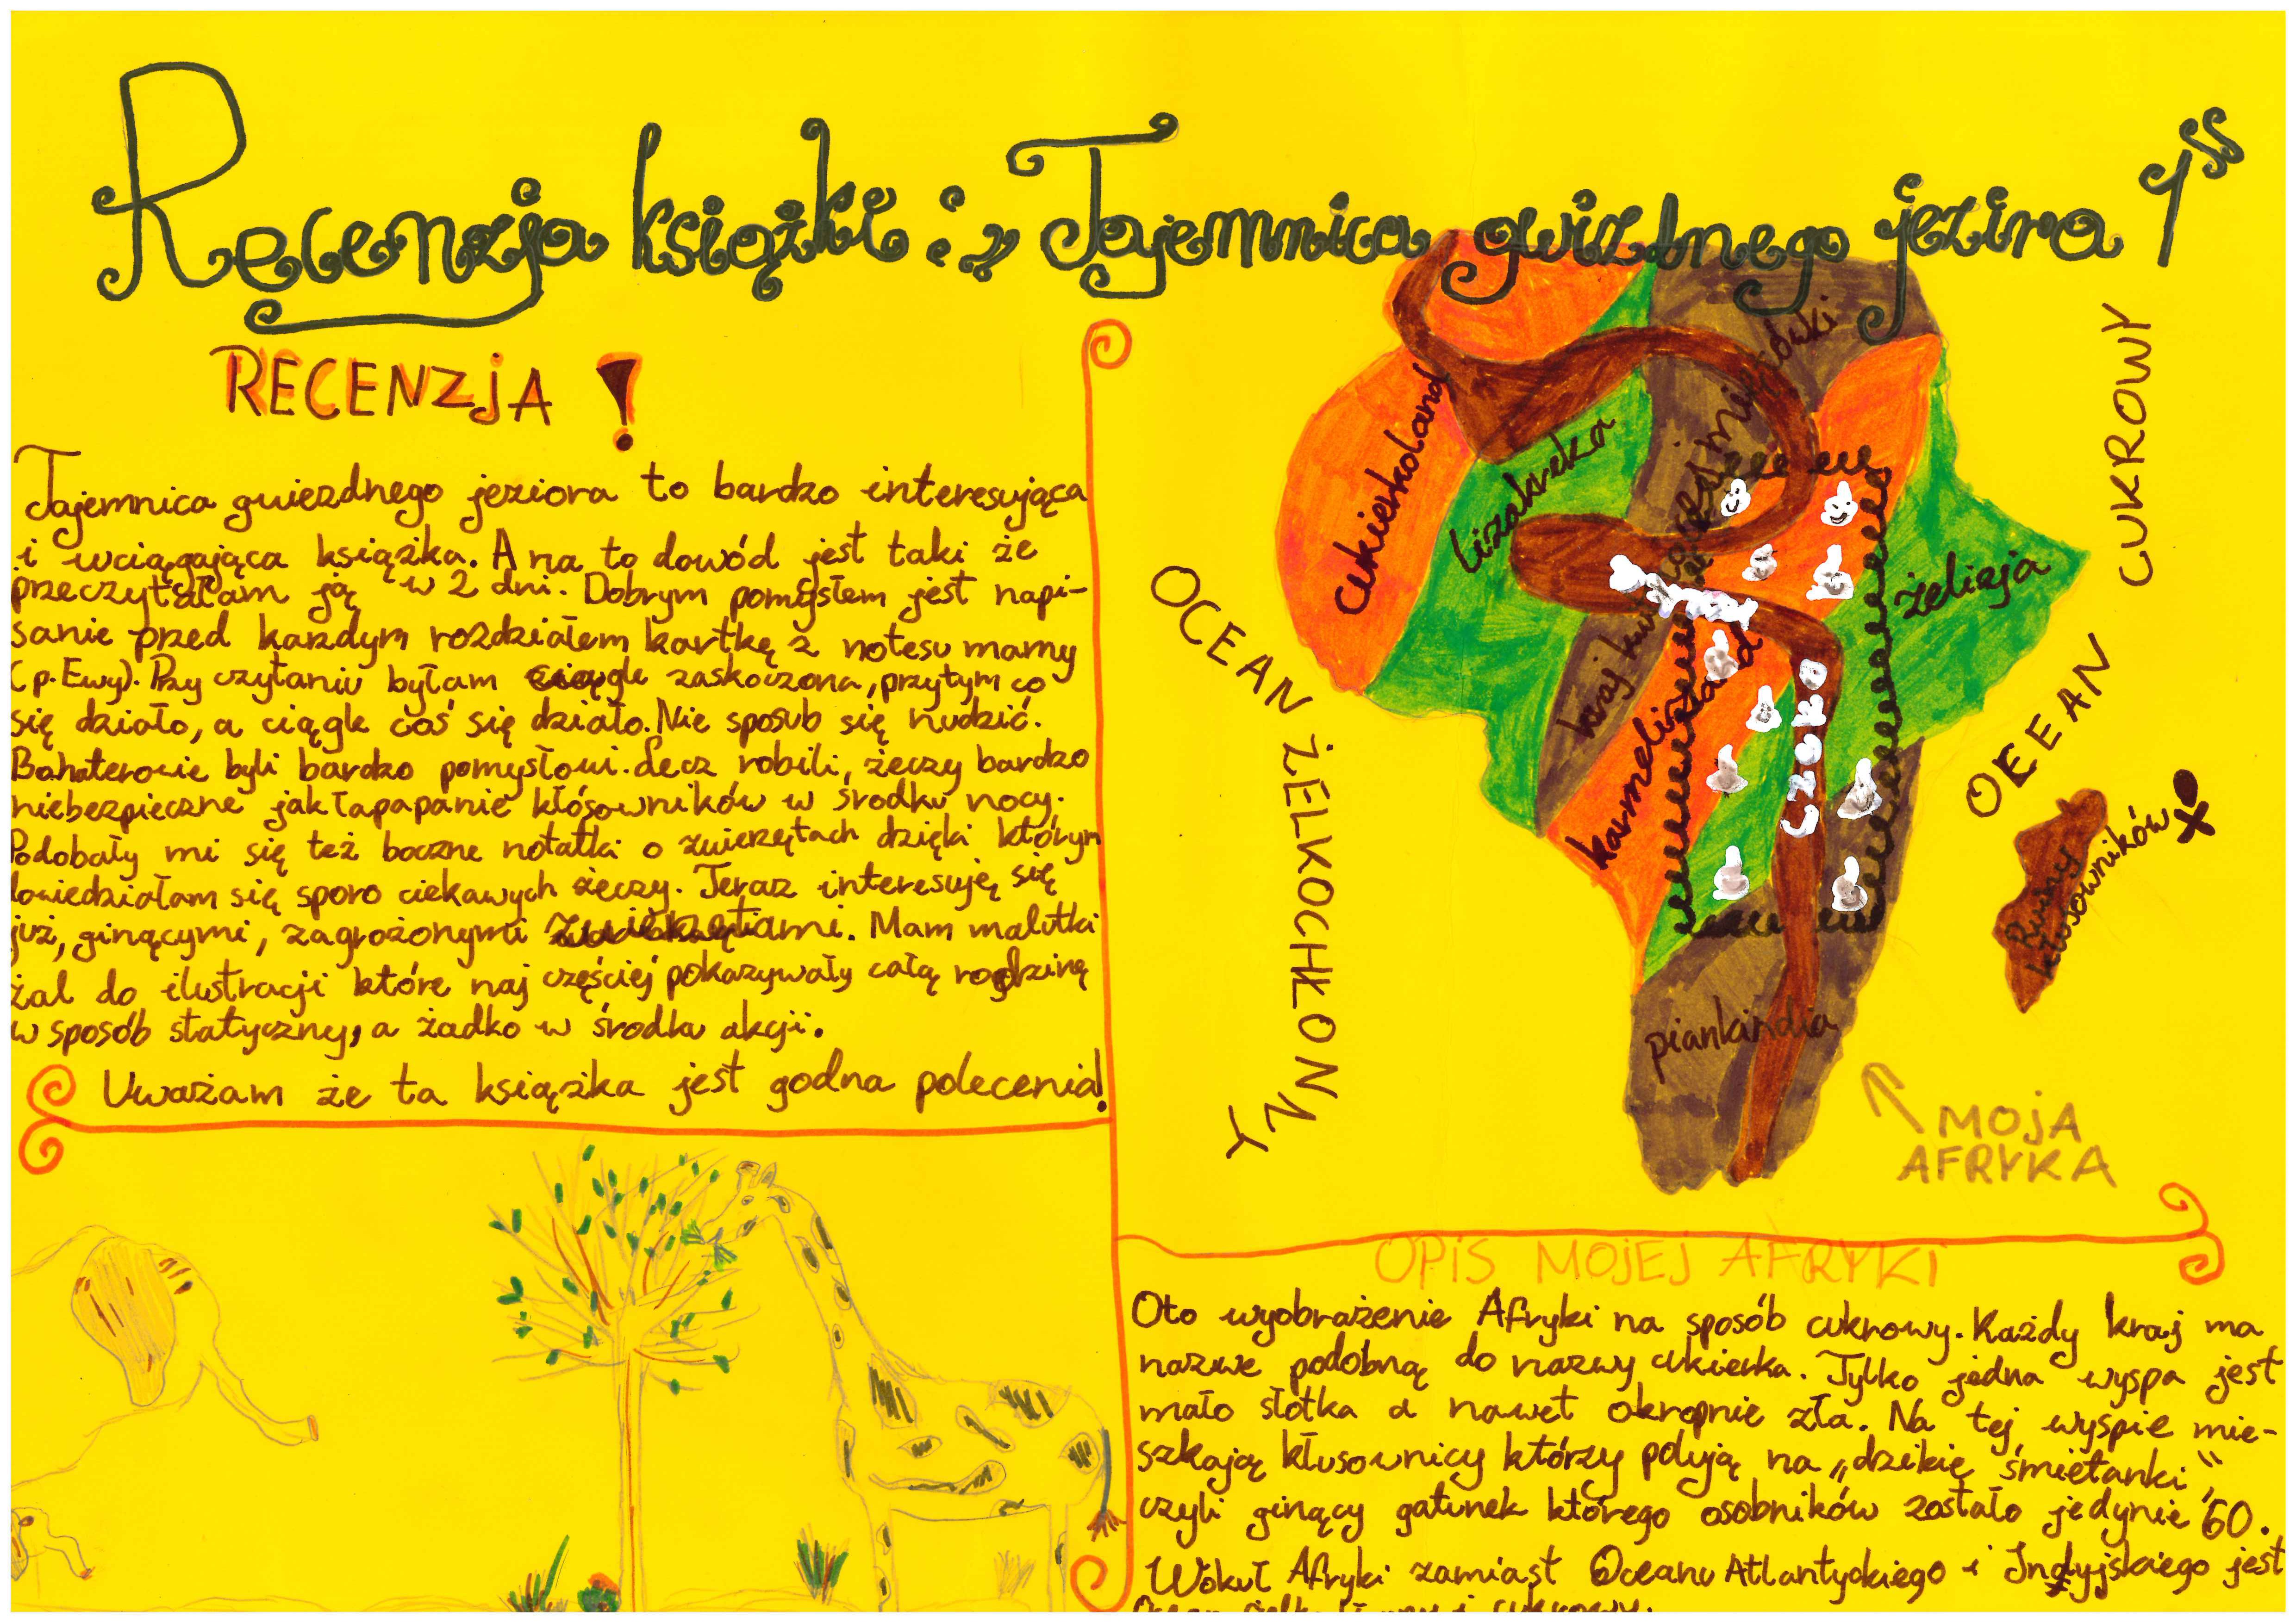 Recenzja książki: „Tajemnica gwizdnego jezira"
RECENZJA !
Tajemnica gwiezdnego jeziora to bardzo interesująca
i wciągająca książka. A na to dowód jest taki że
przeczytałam ją w 2 dni. Dobrym pomysłem jest napi-
sanie przed kazdym rozdziałem kartkę z notesu mamy
(p. Ewy). Przy czytaniu byłam ciągle zaskoczona, przytym co
się działo, a ciągle coś się działo. Nie sposub się nudzić.
Bohaterowie byli bardzo pomysłowi. Lecz robili, żeczy bardzo
niebezpieczne jak łapapanie kłósowników w środku nocy.
Podobały mi się też boczne notatki o zwierzętach dzięki którym
dowiedziałam się sporo ciekawych żeczy. Teraz interesuję się
już, ginącymi, zagrożonymi zwierzętami. Mam malutki
żal do ilustracji które naj częściej pokazywały całą rodzinę
w sposób statyczny, a żadko w środku akcji.
Uważam że ta książka jest godna polecenia!
cukierkoland
lizakreka
kraj
żelizja
karmelizstad
piankindia
CUKROWY
OCEAN
OCEAN ŻELKOCHŁONNY
Ruiny
kłosowników
MOJA
AFRYKA
OPIS MOJEJ AFRYKI
Oto wyobrażenie Afryki na sposób cukrowy. Każdy kraj ma
nazwe podobną do nazwy cukierka. Tylko jedna wyspa jest
mało słotka a nawet okropnie zła. Na tej wyspie mie-
szkają kłusownicy którzy polują na „dzikie śmietanki",
czyli ginący gatunek którego osobników zostało jedynie 60.
Wokuł Afryki zamiast Oceanu Atlantyckiego i Indyjskiego jest
i cukrowy.